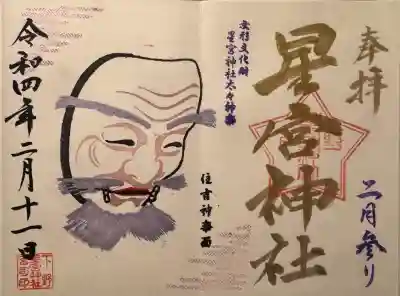 奉拝
星宮神社
二月参り
文形文化財
星宮神社太々神楽
住吉神楽面
令和四年二月十一日
下野